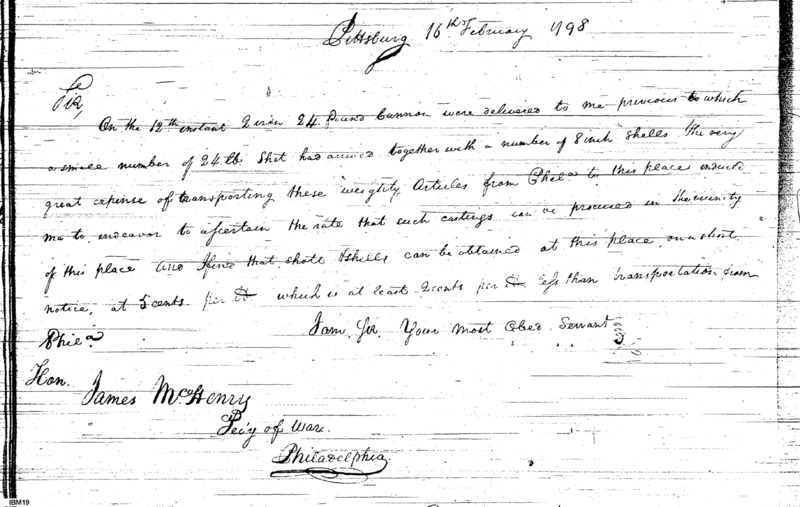 Pittsburg 16th February 1798
Sir,
On the 12th instant 2 iron 24 Pound Cannon were delivered to me previous to which
a small number of 24 lb Shot had arrived together with a number of 8 inch Shells The very
great expense of transporting these weighty Articles from Phila to this place induce
me to endeavor to ascertain the rate that such castings can be procured in the vicinity
of this place and I find that shott & shells can be obtained at this place on a short
notice, at 5 cents per lb which is at least 2 cents per lb less than transportation from
Phila
I am Sir Your Most Obed Servant
Hon.
James McHenry
Secy of War
Philadelphia
IBM19